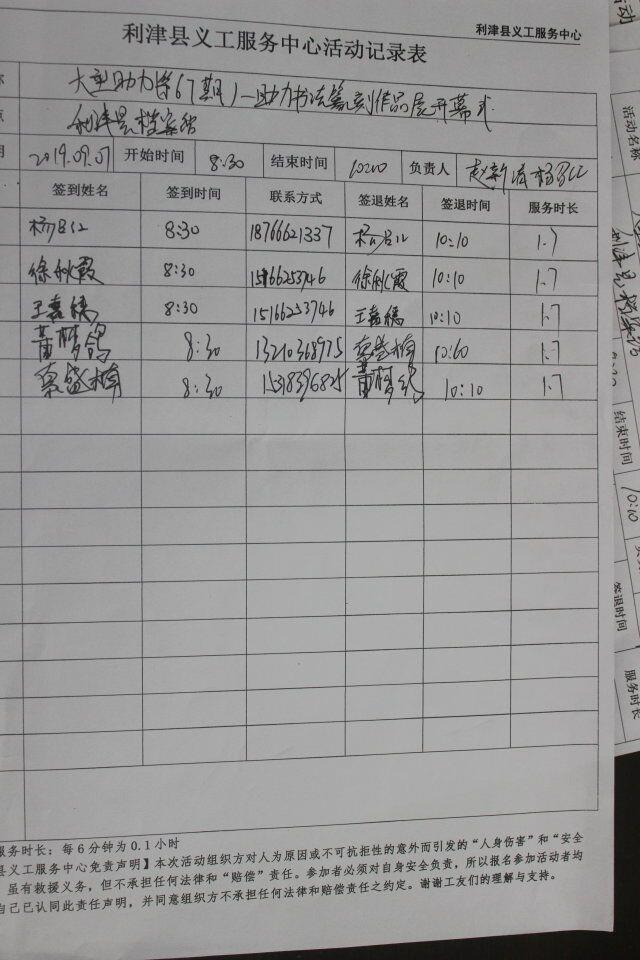 利津县义工服务中心
利津县义工服务中心活动记录表
大型助力第67期)—助力书法篆刻作品展开幕式
利津县档案馆
2019.09.07 开始时间 8:30 结束时间 10:10 负责人 赵新
签到姓名 签到时间 联系方式 签退姓名 签退时间 服务时长
8:30 18766621337 10:10 1.7
徐秋霞 8:30 15166253746 徐秋霞 10:10 1.7
王嘉 8:30 15166253746 王嘉 10:10 1.7
董梦鸽 8:30 13210368975 栾盛梅 10:60 1.7
栾盛梅 8:30 15318396825 董梦鸽 10:10 1.7
服务时长：每6分钟为0.1小时
县义工服务中心免责声明】本次活动组织方对人为原因或不可抗拒性的意外而引发的“人身伤害”和“安全
虽有救援义务，但不承担任何法律和“赔偿”责任。参加者必须对自身安全负责，所以报名参加活动者均
自己已认同此责任声明，并同意组织方不承担任何法律和赔偿责任之约定。谢谢工友们的理解与支持。
活动
活动名称
结束时间
10:10
签退时间
服务时长